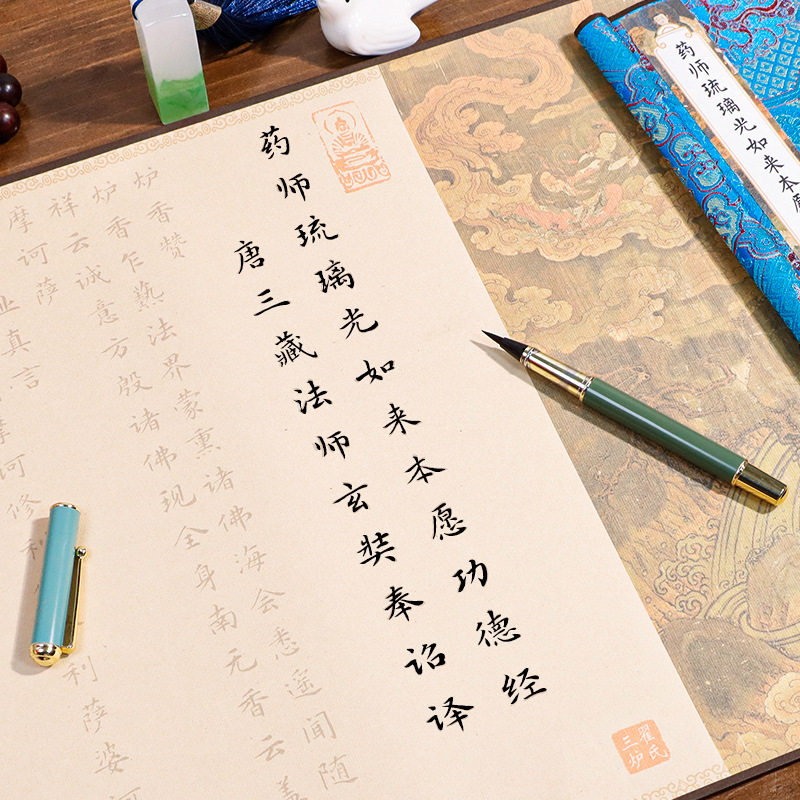 药师琉璃光如来本
药师琉璃光如来本愿功德经
唐三藏法师玄奘奉诏译
炉香赞
炉香乍爇法界蒙熏诸佛海会悉遥闻随
祥云诚意方殷诸佛现全身南无香云盖
摩诃萨
业真言
诃修利
利萨婆诃
氏三炉